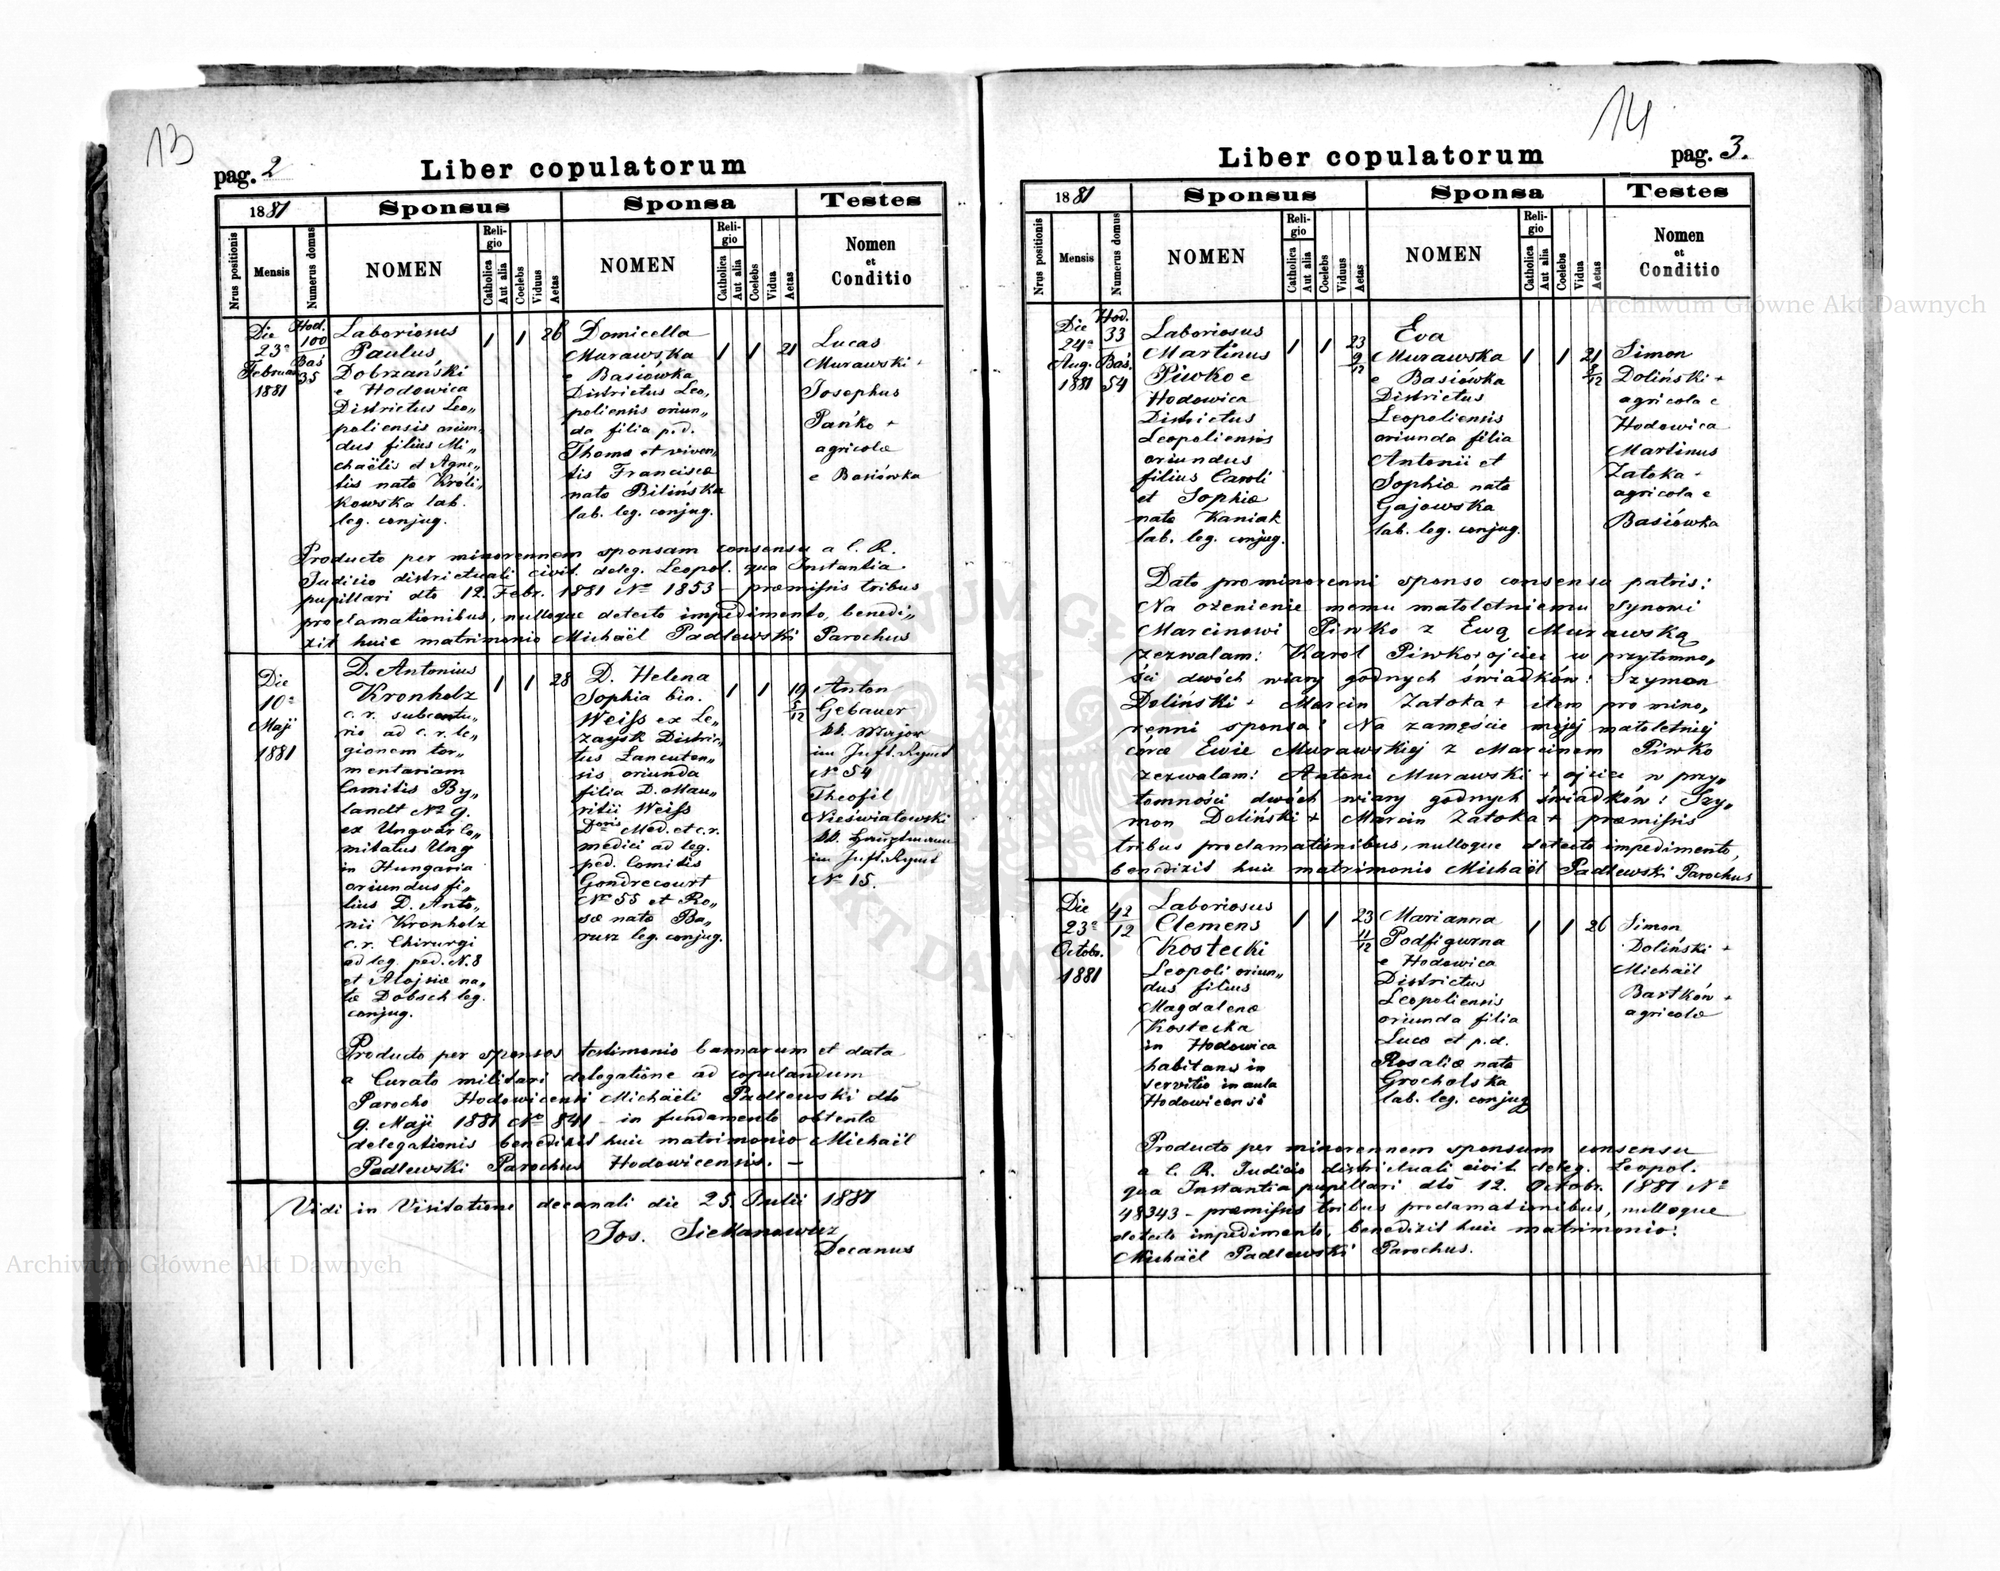 13
pag. 2
Liber copulatorum
1881
Sponsus
Sponsa
Testes
Nrus positionis
Mensis
Numerus domus
NOMEN
Religio
Catholica
Aut alia
Coelebs
Viduus
Aetas
NOMEN
Religio
Catholica
Aut alia
Coelebs
Vidua
Aetas
Nomen
et
Conditio
Die
23a
Februar
1881
Hod.
100
Bas
35
Laboriosus
Paulus
Dobrzański
e Hodowica
Districtus Leo„
poliensis oriun„
dus filius Mi„
chaëlis et Agne„
tis nata Króli„
kowska lab.
leg. conjug.
1
1
26
Domicella
Murawska
e Basiówka
Districtus Leo„
poliensis oriun„
da filia p.d.
Thoma et viven„
tis Francisca
nata Bilińska
lab. leg. conjug.
1
1
21
Lucas
Murawski +
Josephus
Pańko +
agricolæ
e Basiówka
Producto per minorennem sponsam consensu a C. R.
Judicio districtuali civit. deleg. Leopol. qua Instantia
pupillari dto 12. Febr. 1881 No 1853 – præmissis tribus
proclamationibus, nulloque detecto impedimento, benedi„
xit huic matrimonio Michaël Padlewski Parochus
Die
10a
Maji
1881
D. Antonius
Kronholz
c. r. subcentu„
rio ad c. r. le„
gionem tor„
mentariam
Comitis By„
landt No 9.
ex Ungvár Co„
mitatus Ung
in Hungaria
oriundus fi„
lius D. Anto„
nii Kronholz
c. r. Chirurgi
ad leg. ped. N. 8
et Alojsiæ na„
tæ Dobsch leg.
conjug.
1
1
28
D. Helena
Sophia bin.
Weiss ex Le„
zaysk Distric„
tus Lancuten„
sis oriunda
filia D. Mau„
ritii Weiss
Doris Med. et c.r.
medici ad leg.
ped. Comitis
Gondrecourt
No 55 et Ro„
sæ nata Ba„
rusz leg. conjug.
1
1
19
5/12
Anton
Gebauer
kk. Major
im Inft. Rgmt
No 54
Theofil
Nieświatowski
kk. Hauptmann
im Inft. Rgmt
No 15.
Producto per sponsos testimonio bannarum et data
a Curato militari delegatione ad copulandum
Parocho Hodowicensi Michaëli Padlewski dto
9. Maji 1881 No 841 – in fundamento obtentæ
delegationis benedixit huic matrimonio Michaël
Padlewski Parochus Hodowicensis. –
Vidi in Visitatione decanali die 25. Julii 1881
Jos. Siekanowicz
Decanus
14
Liber copulatorum
pag. 3.
1881
Sponsus
Sponsa
Testes
Nrus positionis
Mensis
Numerus domus
NOMEN
Religio
Catholica
Aut alia
Coelebs
Viduus
Aetas
NOMEN
Religio
Catholica
Aut alia
Coelebs
Vidua
Aetas
Nomen
et
Conditio
Die
24a
Aug.
1881
Hod.
33
Bas.
54
Laboriosus
Martinus
Piwko e
Hodowica
Districtus
Leopoliensis
oriundus
filius Caroli
et Sophiæ
nata Kaniak
lab. leg. conjug.
1
1
23
9/12
Eva
Murawska
e Basiówka
Districtus
Leopoliensis
oriunda filia
Antonii et
Sophiæ nata
Gajowska
lab. leg. conjug.
1
1
21
8/12
Simon
Doliński +
agricola e
Hodowica
Martinus
Zatoka +
agricola e
Basiówka
Dato pro minorenni sponso consensu patris:
Na ożenienie memu małoletniemu Synowi
Marcinowi Piwko z Ewą Murawską
zezwalam: Karol Piwko + ojciec w przytomno„
ści dwóch wiary godnych świadków: Szymon
Doliński + Marcin Zatoka + item pro mino„
renni sponsa: Na zamęście mojej małoletniej
córce Ewie Murawskiej z Marcinem Piwko
zezwalam: Antoni Murawski + ojciec w przy„
tomności dwóch wiary godnych świadków: Szy„
mon Doliński + Marcin Zatoka + præmissis
tribus proclamationibus, nulloque detecto impedimento,
benedixit huic matrimonio Michaël Padlewski Parochus
Die
23a
Octobr.
1881
42
12
Laboriosus
Clemens
Kostecki
Leopoli oriun„
dus filius
Magdalenæ
Kostecka
in Hodowica
habitans in
servitio in aula
Hodowicensi
1
1
23
11/12
Marianna
Podfigurna
e Hodowica
Districtus
Leopoliensis
oriunda filia
Lucæ et p.d.
Rosaliæ nata
Grocholska
lab. leg. conjug
1
1
26
Simon
Doliński +
Michaël
Bartków +
agricolæ
Producto per minorennem sponsum consensu
a C. R. Judicio districtuali civit. deleg. Leopol.
qua Instantia pupillari dto 12. Octobr. 1881 No
48343 – præmissis tribus proclamationibus, nulloque
detecto impedimento, benedixit huic matrimonio:
Michaël Padlewski Parochus.
Archiwum Główne Akt Dawnych
Archiwum Główne Akt Dawnych